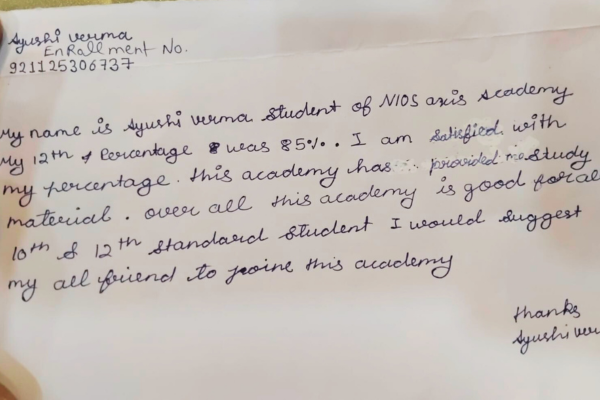 Ayushi verma
Enrallment No.
921125306737
My name is Ayushi verma student of NIOS axis academy
My 12th Percentage was 85%. I am satisfied with
my percentage. this academy has provided study
material. over all this academy is good for all
10th & 12th standard student I would suggest
my all friend to joine this academy
thanks
Ayushi ver